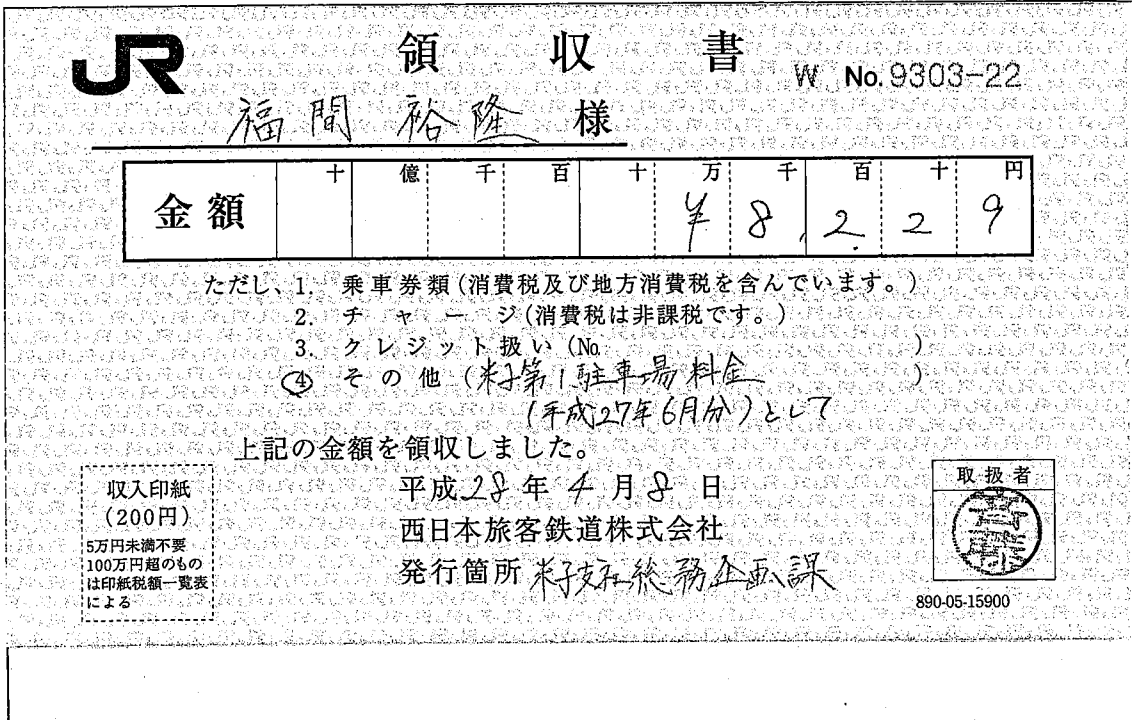 JR 領収書 W No. 9303-22
福間 裕隆 様
十 億 千 百 十 万 千 百 十 円
金額 ¥8,229
ただし、1. 乗車券類(消費税及び地方消費税を含んでいます。)
2. チャージ(消費税は非課税です。)
3. クレジット扱い(No. )
④ その他(米子第1駐車場料金 )
(平成27年6月分)として
上記の金額を領収しました。
平成28年4月8日
西日本旅客鉄道株式会社
発行箇所 米子支社総務企画課
収入印紙
(200円)
5万円未満不要
100万円超のもの
は印紙税額一覧表
による
取扱者
890-05-15900